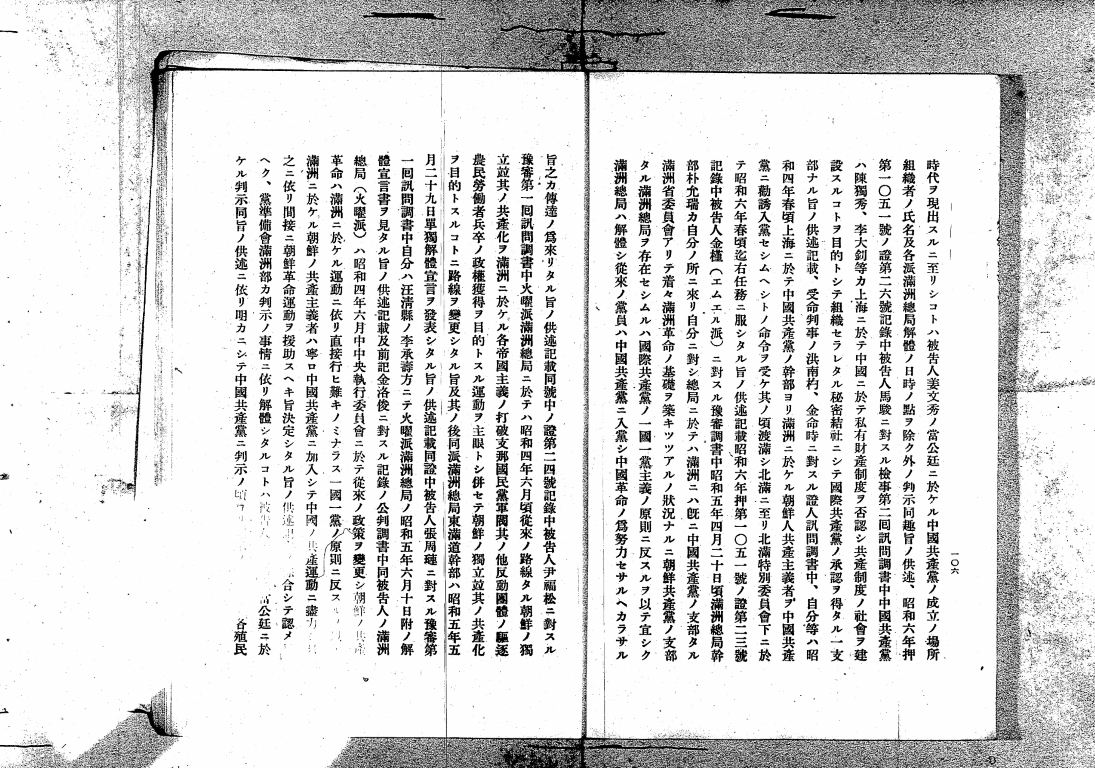 一〇六
時代ヲ現出スルニ至リシコトハ被告人姜文秀ノ當公廷ニ於ケル中國共產黨ノ成立ノ場所
組織者ノ氏名及各派滿洲總局解體ノ日時ノ點ヲ除ク外ノ判示同趣旨ノ供述、昭和六年押
第一〇五一號ノ證第二六號記錄中被告人馬駿ニ對スル檢事第二囘訊問調書中中國共產黨
ハ陳獨秀、李大釗等カ上海ニ於テ中國ニ於テ私有財產制度ヲ否認シ共產制度ノ社會ヲ建
設スルコトヲ目的トシテ組織セラレタル秘密結社ニシテ國際共產黨ノ承認ヲ得タル一支
部ナル旨ノ供述記載、受命判事ノ洪南杓、金命時ニ對スル證人訊問調書中、自分等ハ昭
和四年春頃上海ニ於テ中國共產黨ノ幹部ヨリ滿洲ニ於ケル朝鮮人共產主義者ヲ中國共產
黨ニ勸誘入黨セシムヘシトノ命令ヲ受ケ其ノ頃渡滿シ北滿ニ至リ北滿特別委員會下ニ於
テ昭和六年春頃迄右任務ニ服シタル旨ノ供述記載昭和六年押第一〇五一號ノ證第二三號
記錄中被告人金槿(エムエル派)ニ對スル豫審調書中昭和五年四月二十日頃滿洲總局幹
部朴允瑞カ自分ノ所ニ來リ自分ニ對シ總局ニ於テハ滿洲ニハ旣ニ中國共產黨ノ支部タル
滿洲省委員會アリテ着々滿洲革命ノ基礎ヲ築キツツアルノ狀況ナルニ朝鮮共產黨ノ支部
タル滿洲總局ヲ存在セシムルハ國際共產黨ノ一國一黨主義ノ原則ニ反スルヲ以テ宜シク
滿洲總局ハ解體シ從來ノ黨員ハ中國共產黨ニ入黨シ中國革命ノ爲努力セサルヘカラサル
旨之カ傳達ノ爲來リタル旨ノ供述記載同號中ノ證第二四號記錄中被告人尹福松ニ對スル
豫審第一囘訊問調書中火曜派滿洲總局ニ於テハ昭和四年六月頃從來ノ路線タル朝鮮ノ獨
立竝其ノ共產化ヲ滿洲ニ於ケル各帝國主義ノ打破支那國民黨軍閥其ノ他反動團體ノ驅逐
農民勞働者兵卒ノ政權獲得ヲ目的トスル運動ヲ主眼トシ併セテ朝鮮ノ獨立竝其ノ共產化
ヲ目的トスルコトニ路線ヲ變更シタル旨及其ノ後同派滿洲總局東滿道幹部ハ昭和五年五
月二十九日單獨解體宣言ヲ發表シタル旨ノ供述記載同證中被告人張周璉ニ對スル豫審第
一囘訊問調書中自分ハ汪清縣ノ李承壽方ニテ火曜派滿洲總局ノ昭和五年六月十日附ノ解
體宣言書ヲ見タル旨ノ供述記載及前記金洛俊ニ對スル記錄ノ公判調書中同被告人ノ滿洲
總局(火曜派)ハ昭和四年六月中中央執行委員會ニ於テ從來ノ政策ヲ變更シ朝鮮ノ共產
革命ハ滿洲ニ於ケル運動ニ依リ直接行ヒ難キノミナラス一國一黨ノ原則ニ反ス
滿洲ニ於ケル朝鮮ノ共產主義者ハ寧ロ中國共產黨ニ加入シテ中國ノ共產運動ニ盡力
之ニ依リ間接ニ朝鮮革命運動ヲ援助スヘキ旨決定シタル旨ノ供述 合シテ認メ
ヘク、黨準備會滿洲部カ判示ノ事情ニ依リ解體シタルコトハ被告人 當公廷ニ於
ケル判示同旨ノ供述ニ依リ明カニシテ中國共產黨ニ判示ノ頃 各殖民